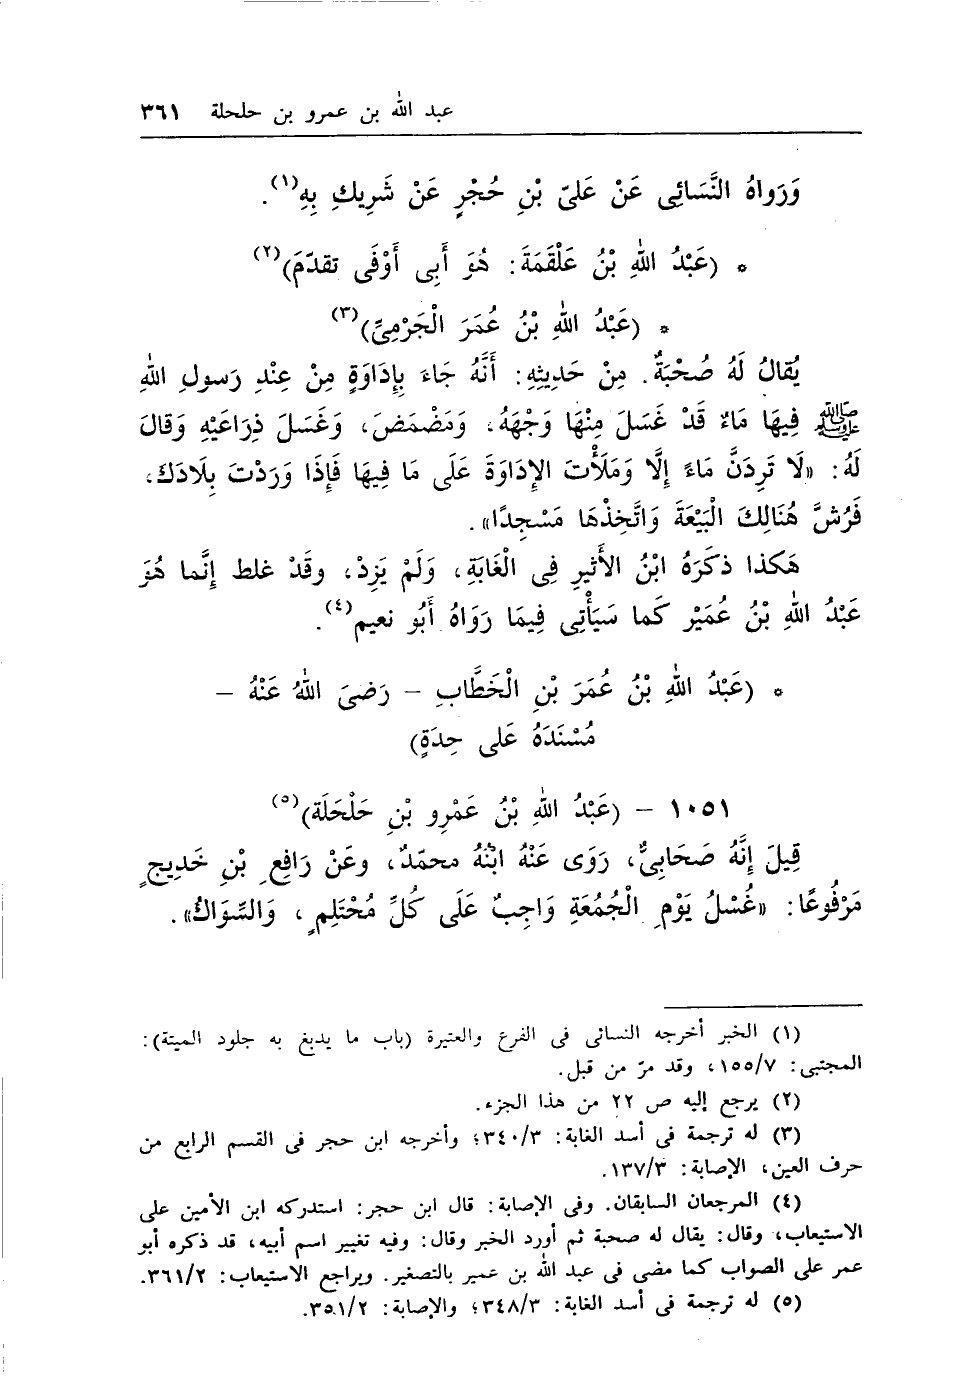 عبد الله بن عمرو بن حلحلة ٣٦١
وَرَواهُ النَّسَائِى عَنْ عَلىّ بْنِ حُجْرٍ عَنْ شَرِيكِ بِهِ(١).
* (عَبْدُ اللهِ بْنُ عَلْقَمَةَ: هُوَ أَبِى أَوْفَى تقدّمَ)(٢)
* (عَبْدُ اللهِ بْنُ عُمَرَ الْجَرْمِىِّ)(٣)
يُقالُ لَهُ صُحْبَةٌ. مِنْ حَدِيثِهِ: أَنَّهُ جَاءَ بِإدَاوَةٍ مِنْ عِنْدِ رَسولِ اللهِ
ﷺ فِيهَا مَاءٌ قَدْ غَسَلَ مِنْهَا وَجْهَهُ، وَمَضْمَضَ، وَغَسَلَ ذِرَاعَيْهِ وَقالَ
لَهُ: «لَا تَرِدَنَّ مَاءً إِلَّا وَمَلَأْتَ الإدَاوَةَ عَلَى مَا فِيهَا فَإِذَا وَرَدْتَ بِلَادَكَ،
فَرُشَّ هُنَالِكَ الْبَيْعَةَ وَاتَّخِذْهَا مَسْجِدًا».
هَكذا ذكَرَهُ ابْنُ الأَثيرِ فِى الْغَابَةِ، وَلَمْ يَزِدْ، وقَدْ غلط إِنَّما هُوَ
عَبْدُ اللهِ بْنُ عُمَيْر كَما سَيَأْتِى فِيمَا رَوَاهُ أَبُو نعيم(٤).
* (عَبْدُ اللهِ بْنُ عُمَرَ بْنِ الْخَطَّابِ – رَضىَ اللهُ عَنْهُ –
مُسْنَدَهُ عَلى حِدَةٍ)
١٠٥١ – (عَبْدُ اللهِ بْنُ عَمْرِو بْنِ حَلْحَلَة)(٥)
قِيلَ إِنَّهُ صَحَابِىٌّ، رَوَى عَنْهُ ابْنُهُ محمّدٌ، وعَنْ رَافِعِ بْنِ خَدِيجٍ
مَرْفُوعًا: «غُسْلُ يَوْمِ الْجُمُعَةِ وَاجِبٌ عَلَى كُلِّ مُحْتَلِمٍ، وَالسِّوَاكُ».
(١) الخبر أخرجه النسائى فى الفرع والعتيرة (باب ما يدبغ به جلود الميتة):
المجتبى: ١٥٥/٧، وقد مرّ من قبل.
(٢) يرجع إليه ص ٢٢ من هذا الجزء.
(٣) له ترجمة فى أسد الغابة: ٣٤٠/٣؛ وأخرجه ابن حجر فى القسم الرابع من
حرف العين، الإصابة: ١٣٧/٣.
(٤) المرجعان السابقان. وفى الإصابة: قال ابن حجر: استدركه ابن الأمين على
الاستيعاب، وقال: يقال له صحبة ثم أورد الخبر وقال: وفيه تغيير اسم أبيه، قد ذكره أبو
عمر على الصواب كما مضى فى عبد الله بن عمير بالتصغير. ويراجع الاستيعاب: ٣٦١/٢.
(٥) له ترجمة فى أسد الغابة: ٣٤٨/٣؛ والإصابة: ٣٥١/٢.